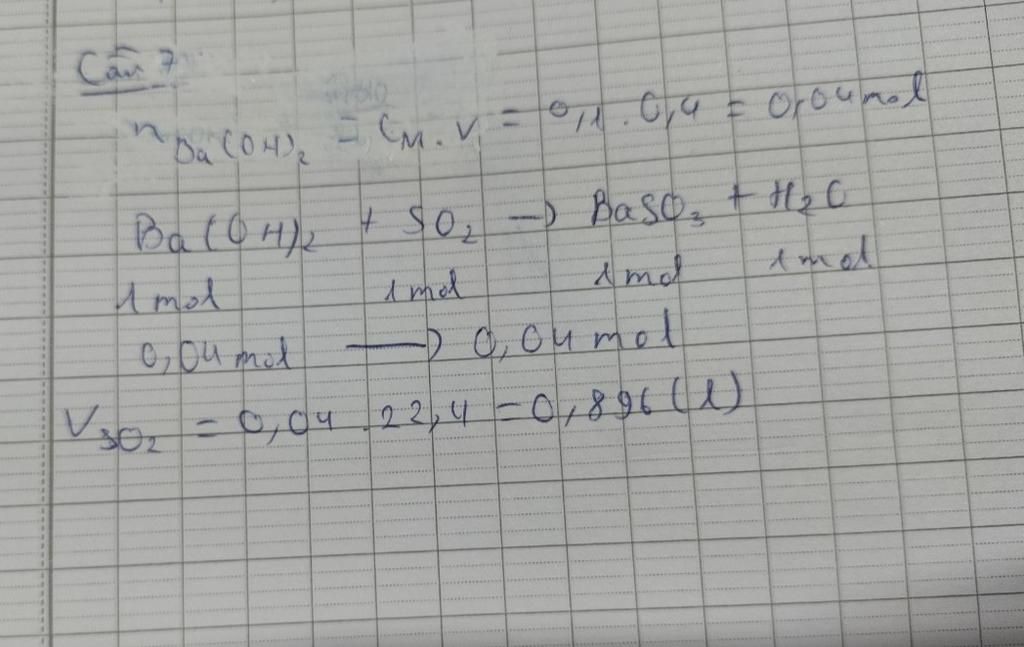 Câu 7
n Ba(OH)₂ = C_M . V = 0,1 . 0,4 = 0,04 mol
Ba(OH)₂ + SO₂ → BaSO₃ + H₂O
1 mol 1 mol 1 mol 1 mol
0,04 mol → 0,04 mol
V SO₂ = 0,04 . 22,4 = 0,896 (l)